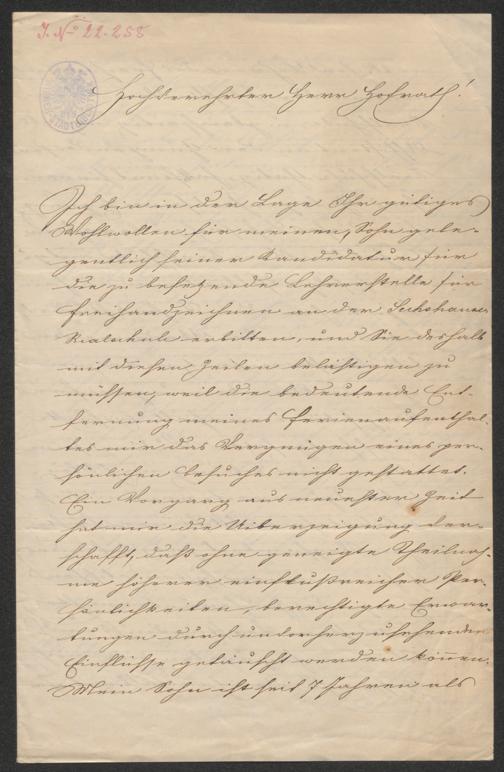 J. No 22.258
Hochverehrter Herr Hofrath!
Ich bin in der Lage Ihr gütiges
Wohlwollen für meinen Sohn gele-
gentlich seiner Kandidatur für
die zu besetzende Lehrerstelle für
Freihandzeichnen an der Sechshauser
Realschule erbitten, und Sie deshalb
mit diesen Zeilen belästigen zu
müssen, weil die bedeutende Ent-
fernung meines Ferienaufenthal-
tes mir das Vergnügen eines per-
sönlichen Besuches nicht gestattet.
Ein Vorgang aus neuester Zeit
hat mir die Uiberzeigung ver-
schafft, daß ohne geneigte Theilnah-
me höherer einflußreicher Per-
sönlichkeiten, berechtigte Erwar-
tungen durch
Einflüsse getäuscht werden können.
Mein Sohn ist seit 7 Jahren als